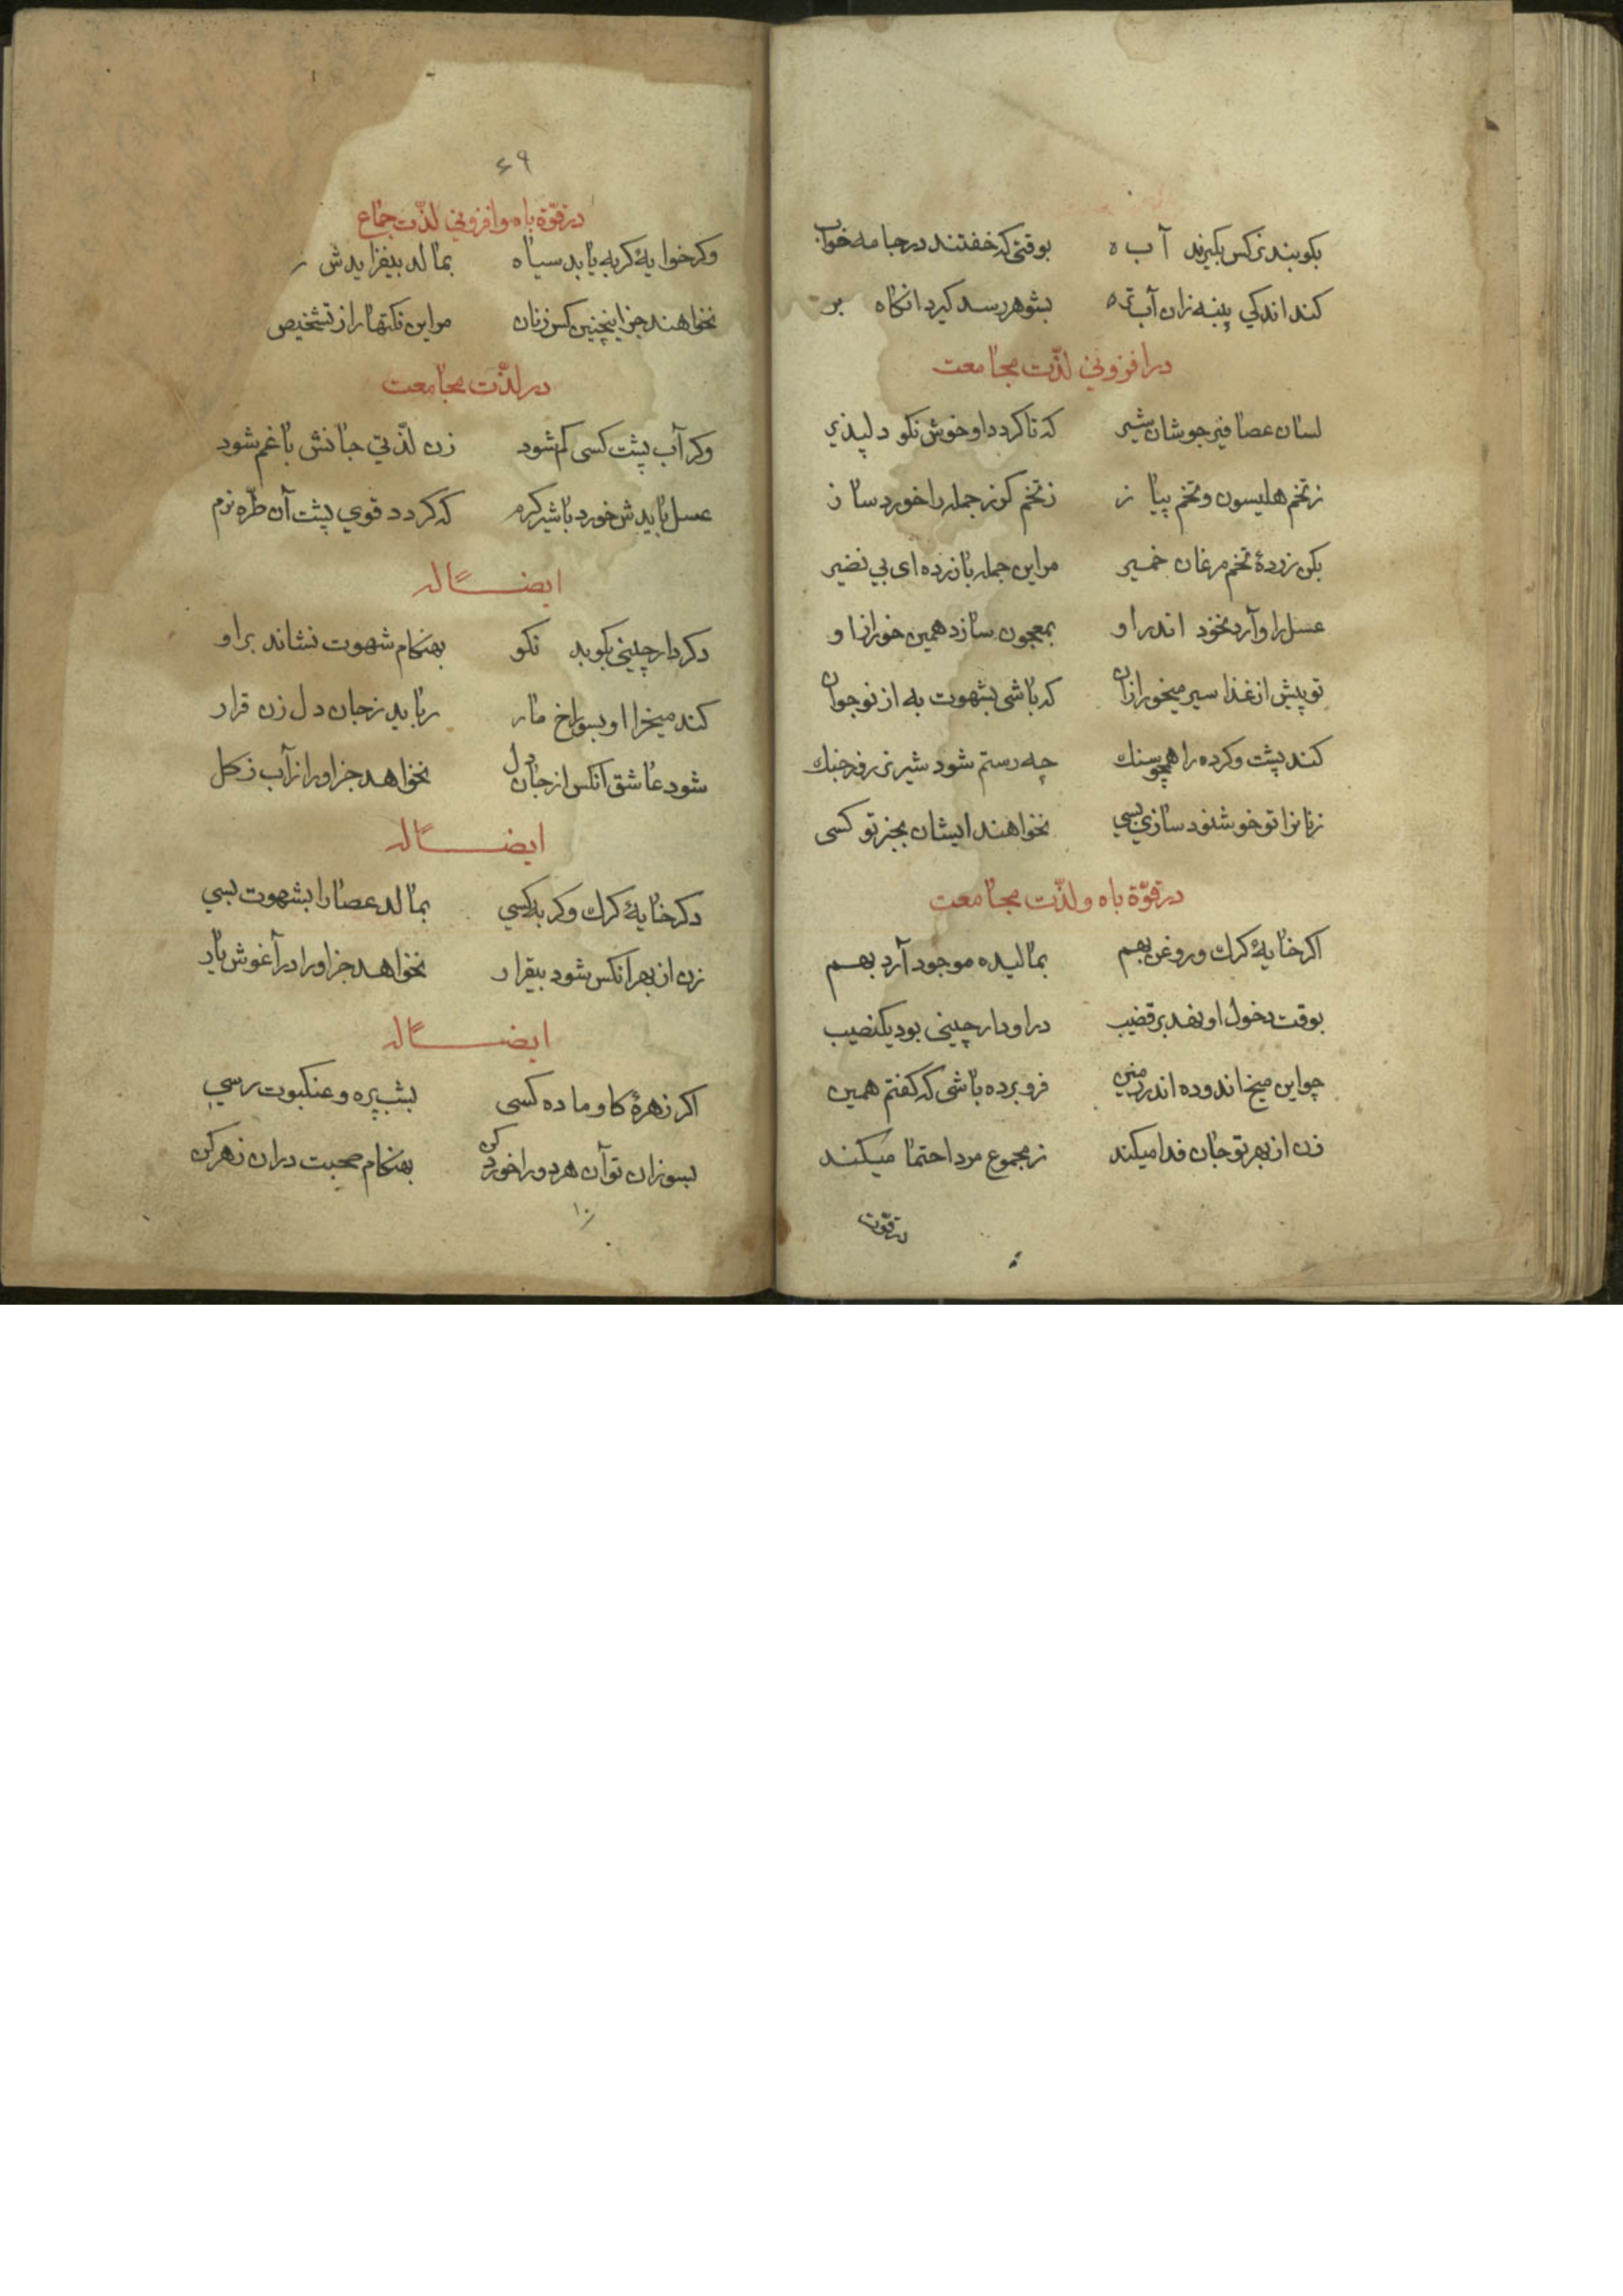 بکوبند نرکس بکیرند آب ه بوقتی که خفتند در جامه خواب
کند اندکی پنبه زان آب تره بشوهر رسد کیرد انکاه بر
در افزونی لذّت مجامعت
لسان عصافیر جوشان بشیر که تا کردد او خوش نکو دلپذیر
ز تخم هلیسون و تخم پیاز ز تخم کوز جمله را خورد ساز
بکن زردهٔ تخم مرغان خمیر مر این جمله با زرده ای بی نضیر
عسل را و آرد نخود اندر او بمعجون سازد همین خور از او
تو پیش از غذا سیر میخور ازان که باشی بشهوت به از نوجوان
کند پشت و کرده را همچو سنك چه رستم شود شیر نر روز جنك
زنانرا تو خوشنود سازی بسی نخواهند ایشان بجز تو کسی
در قوّة باه و لذّت مجامعت
اکر خایهٔ کرك و روغن بهم بمالیده موجود آرد بهم
بوقت دخول او نهد بر قضیب در او دارچینی بود یکنصیب
چو این میخ اندوده اندر زمین فرو برده باشی که کفتم همین
زن از بهر تو جان فدا میکند ز مجموع مرد احتما میکند
در قوّت
۶۹
در قوّة باه و افزونی لذّت جماع
وکر خوایهٔ کربه یابد سیاه بمالد بیفزایدش
نخواهند جز اینچنین کس زنان مر این نکتها را ز تشخیص
در لذّت مجامعت
وکر آب پشت کسی کم شود زن لذّتی جانش با غم شود
عسل بایدش خورد با شیر کرم که کردد قوی پشت آن طرّه نرم
ایضاً له
دکر دارچینی بکوبد نکو بهنکام شهوت نشاند بر او
کند میخرا او بسوراخ مار رباید ز جان دل زن قرار
شود عاشق آنکس از جان دل نخواهد جز او را ز آب ز کل
ایضاً له
دکر خایهٔ کرك و کربه کسی بمالد عصا را بشهوت بسی
زن از بهر انکس شود بیقرار نخواهد جز او را در آغوش یار
ایضاً له
اکر زهرهٔ کاو ماده کسی بشبپره و عنکبوت رسی
بسوزان تو آن هر دو را خورد کن بهنکام صحبت در ان زهر کن